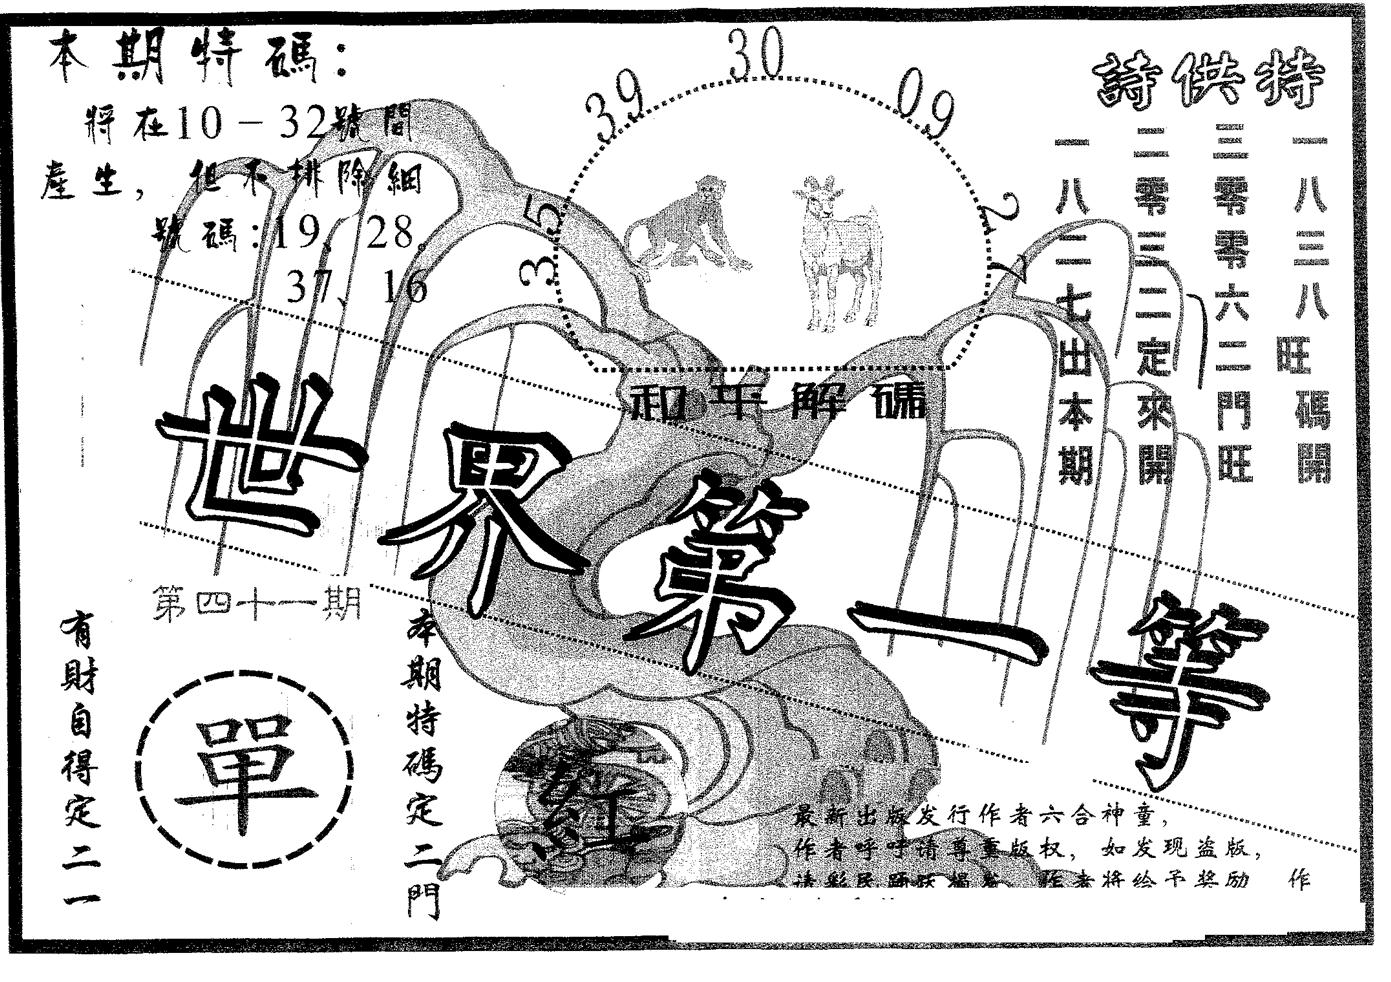 本期特碼：
將在10－32號間
產生，但不排除細
號碼：19、28。
37、16
39
30
09
35
27
和平解碼
特供詩
一八三八旺碼開
三零零六二門旺
二零三二定來開
一八二七出本期
世界第一等
第四十一期
有財自得定二一
單
本期特碼定二門
紅
最新出版发行作者六合神童，
作者呼吁请尊重版权，如发现盗版，
请彩民踊跃揭发 作者将给予奖励 作